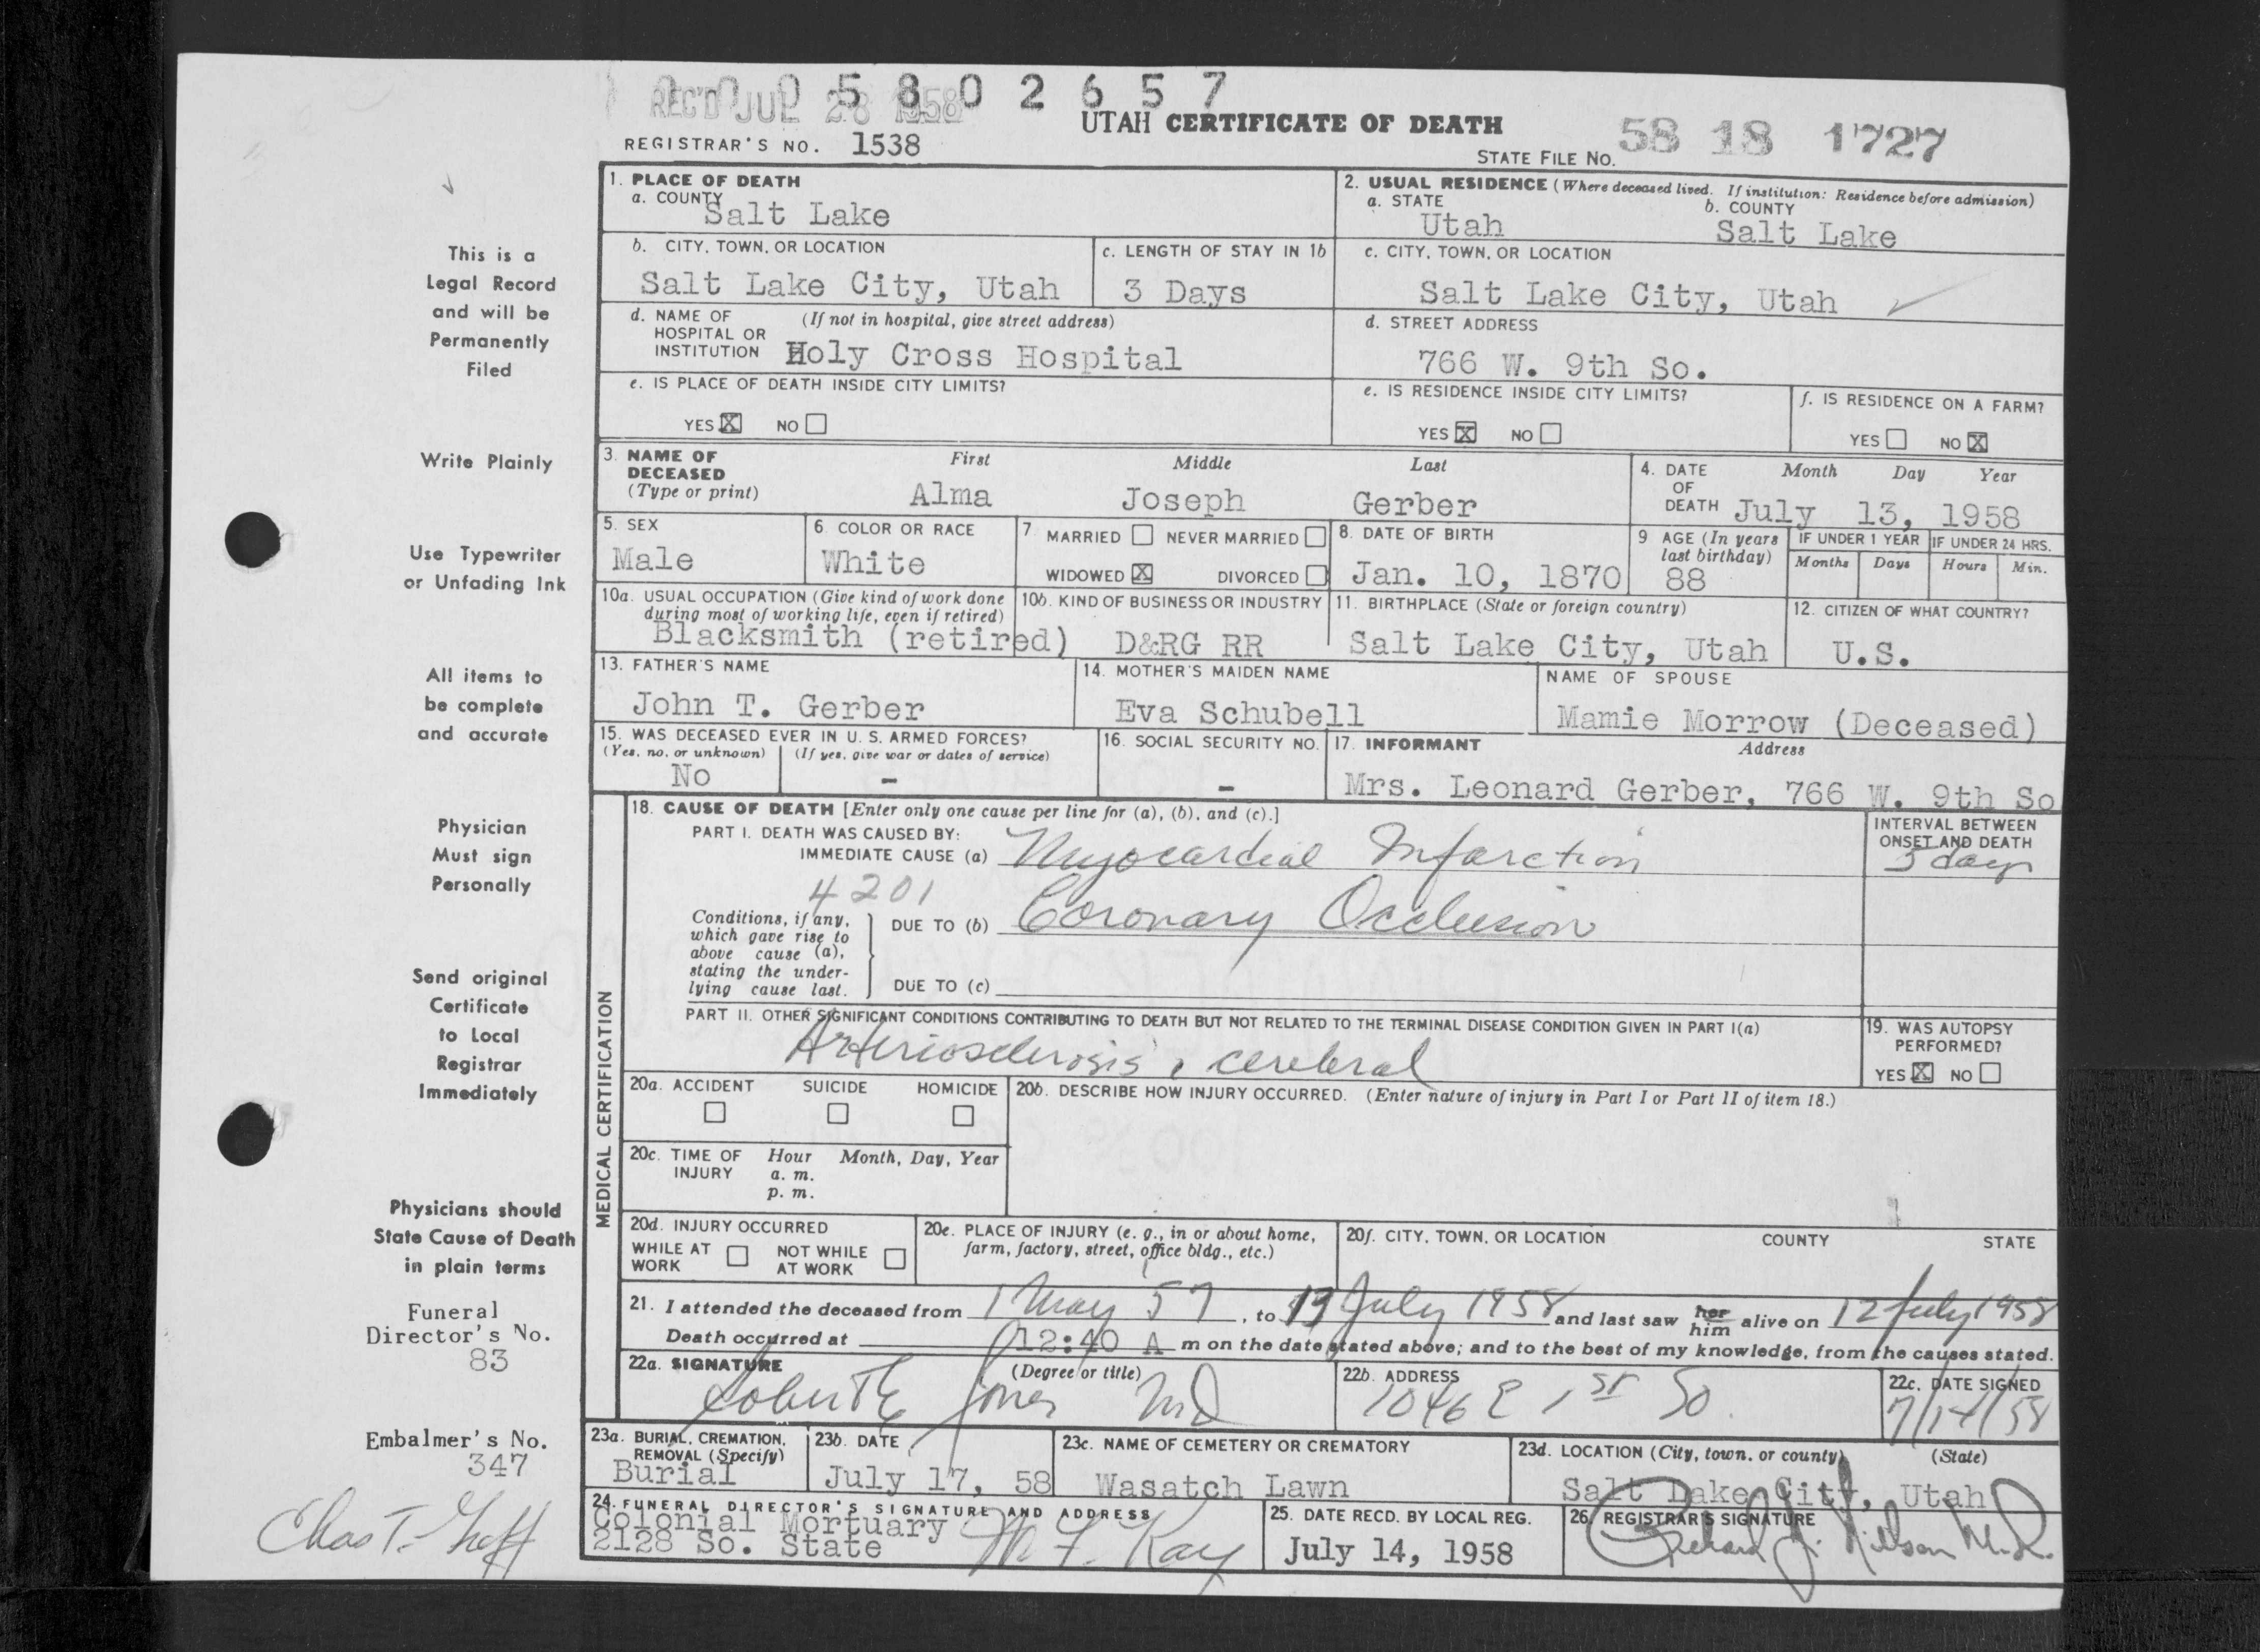 REC'D JUL 28 1958
5 8 0 2 6 5 7
UTAH CERTIFICATE OF DEATH
REGISTRAR'S NO. 1538
STATE FILE NO. 58 18 1727
1. PLACE OF DEATH
a. COUNTY
Salt Lake
2. USUAL RESIDENCE (Where deceased lived. If institution: Residence before admission)
a. STATE
Utah
b. COUNTY
Salt Lake
b. CITY, TOWN, OR LOCATION
Salt Lake City, Utah
c. LENGTH OF STAY IN 1b
3 Days
c. CITY, TOWN, OR LOCATION
Salt Lake City, Utah
d. NAME OF HOSPITAL OR INSTITUTION (If not in hospital, give street address)
Holy Cross Hospital
d. STREET ADDRESS
766 W. 9th So.
e. IS PLACE OF DEATH INSIDE CITY LIMITS?
YES X NO
e. IS RESIDENCE INSIDE CITY LIMITS?
YES X NO
f. IS RESIDENCE ON A FARM?
YES NO X
3. NAME OF DECEASED (Type or print)
First Middle Last
Alma Joseph Gerber
4. DATE OF DEATH
Month Day Year
July 13, 1958
5. SEX
Male
6. COLOR OR RACE
White
7. MARRIED NEVER MARRIED
WIDOWED X DIVORCED
8. DATE OF BIRTH
Jan. 10, 1870
9 AGE (In years last birthday)
88
IF UNDER 1 YEAR
Months Days
IF UNDER 24 HRS.
Hours Min.
10a. USUAL OCCUPATION (Give kind of work done during most of working life, even if retired)
Blacksmith (retired)
10b. KIND OF BUSINESS OR INDUSTRY
D&RG RR
11. BIRTHPLACE (State or foreign country)
Salt Lake City, Utah
12. CITIZEN OF WHAT COUNTRY?
U.S.
13. FATHER'S NAME
John T. Gerber
14. MOTHER'S MAIDEN NAME
Eva Schubell
NAME OF SPOUSE
Mamie Morrow (Deceased)
15. WAS DECEASED EVER IN U. S. ARMED FORCES?
(Yes, no, or unknown) (If yes, give war or dates of service)
No -
16. SOCIAL SECURITY NO.
-
17. INFORMANT Address
Mrs. Leonard Gerber, 766 W. 9th So
MEDICAL CERTIFICATION
18. CAUSE OF DEATH [Enter only one cause per line for (a), (b), and (c).]
PART I. DEATH WAS CAUSED BY:
IMMEDIATE CAUSE (a) Myocardial Infarction
INTERVAL BETWEEN ONSET AND DEATH
5 days
4201
Conditions, if any, which gave rise to above cause (a), stating the underlying cause last.
DUE TO (b) Coronary Occlusion
DUE TO (c)
PART II. OTHER SIGNIFICANT CONDITIONS CONTRIBUTING TO DEATH BUT NOT RELATED TO THE TERMINAL DISEASE CONDITION GIVEN IN PART I(a)
Arteriosclerosis, cerebral
19. WAS AUTOPSY PERFORMED?
YES X NO
20a. ACCIDENT SUICIDE HOMICIDE
20b. DESCRIBE HOW INJURY OCCURRED. (Enter nature of injury in Part I or Part II of item 18.)
20c. TIME OF INJURY Hour Month, Day, Year
a. m.
p. m.
20d. INJURY OCCURRED
WHILE AT WORK NOT WHILE AT WORK
20e. PLACE OF INJURY (e. g., in or about home, farm, factory, street, office bldg., etc.)
20f. CITY, TOWN, OR LOCATION COUNTY STATE
21. I attended the deceased from 1 May 57, to 13 July 1958 and last saw her him alive on 12 July 1958
Death occurred at 12:40 A m on the date stated above; and to the best of my knowledge, from the causes stated.
22a. SIGNATURE (Degree or title)
Robert E Jones MD
22b. ADDRESS
1046 E 1st So.
22c. DATE SIGNED
7/14/58
23a. BURIAL, CREMATION, REMOVAL (Specify)
Burial
23b. DATE
July 17, 58
23c. NAME OF CEMETERY OR CREMATORY
Wasatch Lawn
23d. LOCATION (City, town, or county) (State)
Salt Lake City, Utah
24. FUNERAL DIRECTOR'S SIGNATURE AND ADDRESS
Colonial Mortuary
2128 So. State
M. F. Kay
25. DATE RECD. BY LOCAL REG.
July 14, 1958
26. REGISTRAR'S SIGNATURE
This is a
Legal Record
and will be
Permanently
Filed
Write Plainly
Use Typewriter
or Unfading Ink
All items to
be complete
and accurate
Physician
Must sign
Personally
Send original
Certificate
to Local
Registrar
Immediately
Physicians should
State Cause of Death
in plain terms
Funeral
Director's No.
83
Embalmer's No.
347
Chas T.